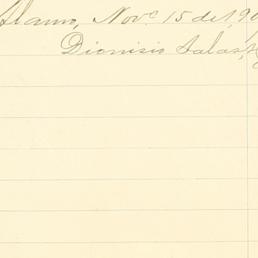 Alamo, Nov.e 15 del 190
Dionisio Salas,